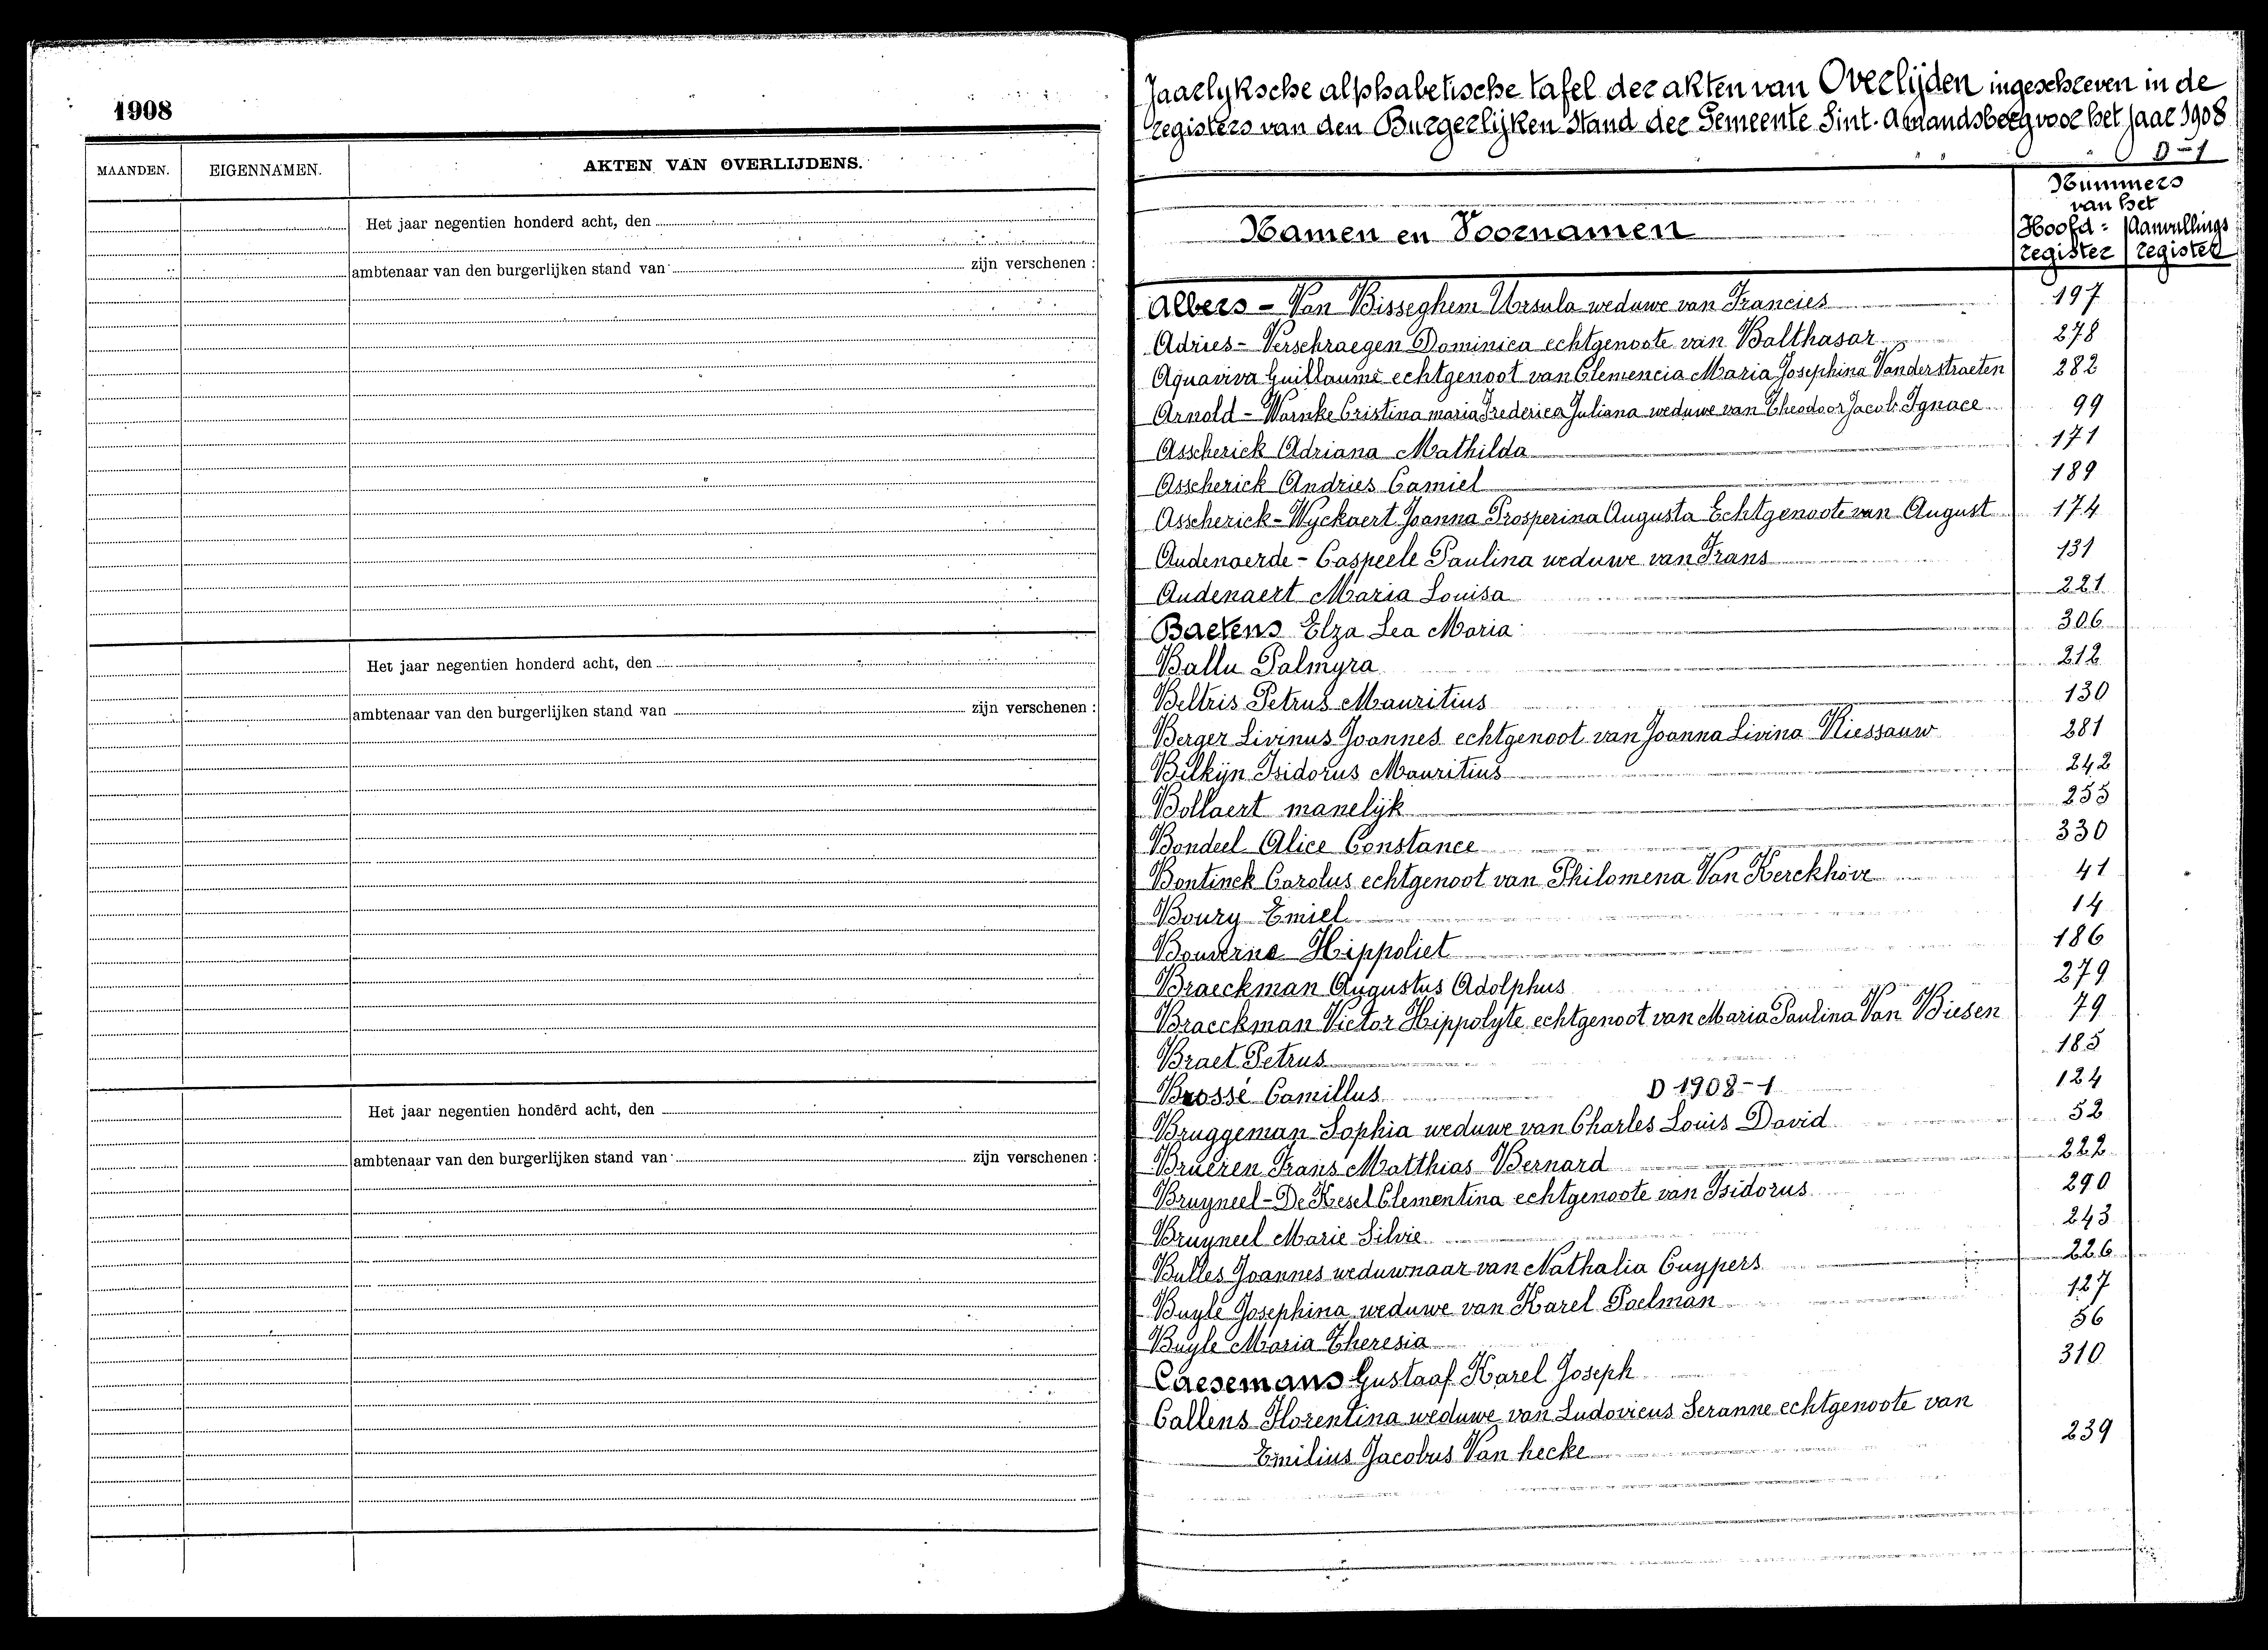 1908
MAANDEN.
EIGENNAMEN.
AKTEN VAN OVERLIJDENS.
Het jaar negentien honderd acht, den
ambtenaar van den burgerlijken stand van zijn verschenen :
Het jaar negentien honderd acht, den
ambtenaar van den burgerlijken stand van zijn verschenen :
Het jaar negentien honderd acht, den
ambtenaar van den burgerlijken stand van zijn verschenen :
Jaarlyksche alphabetische tafel der akten van Overlijden ingeschreven in de
registers van den Burgerlijken Stand der Gemeente Sint-Amandsberg voor het jaar 1908
D-1
Namen en Voornamen
Nummers
van het
Hoofd= Aanvullings
register register
Albers - Van Bisseghem Ursula weduwe van Francies 197
Adries - Verschraegen Dominica echtgenoote van Balthasar 278
Aquaviva Guillaume echtgenoot van Clemencia Maria Josephina Vanderstraeten 282
Arnold - Warnke Cristina maria Frederica Juliana weduwe van Theodoor Jacob Ignace 99
Asscherick Adriana Mathilda 171
Asscherick Andries Camiel 189
Asscherick - Wyckaert Joanna Prosperina Augusta Echtgenoote van August 174
Audenaerde - Caspeele Paulina weduwe van Frans 131
Audenaert Maria Louisa 221
Baetens Elza Lea Maria 306
Ballu Palmyra 212
Beltris Petrus Mauritius 130
Berger Livinus Joannes echtgenoot van Joanna Livina Kiessauw 281
Bilkijn Isidorus Mauritius 242
Bollaert manelijk 255
Bondeel Alice Constance 330
Bontinck Carolus echtgenoot van Philomena Van Kerckhove 41
Boury Emiel 14
Bouverne Hippoliet 186
Braeckman Augustus Adolphus 279
Braeckman Victor Hippolyte echtgenoot van Maria Paulina Van Biesen 79
Braet Petrus 185
Brossé Camillus D 1908-1 124
Bruggeman Sophia weduwe van Charles Louis David 52
Brueren Frans Matthias Bernard 222
Bruyneel - De Kesel Clementina echtgenoote van Isidorus 290
Bruyneel Marie Silvie 243
Bulles Joannes weduwnaar van Nathalia Cuypers 226
Buyle Josephina weduwe van Karel Poelman 127
Buyle Maria Theresia 56
Caesemans Gustaaf Karel Joseph 310
Callens Florentina weduwe van Ludovicus Seranne echtgenoote van
Emilius Jacobus Van hecke 239